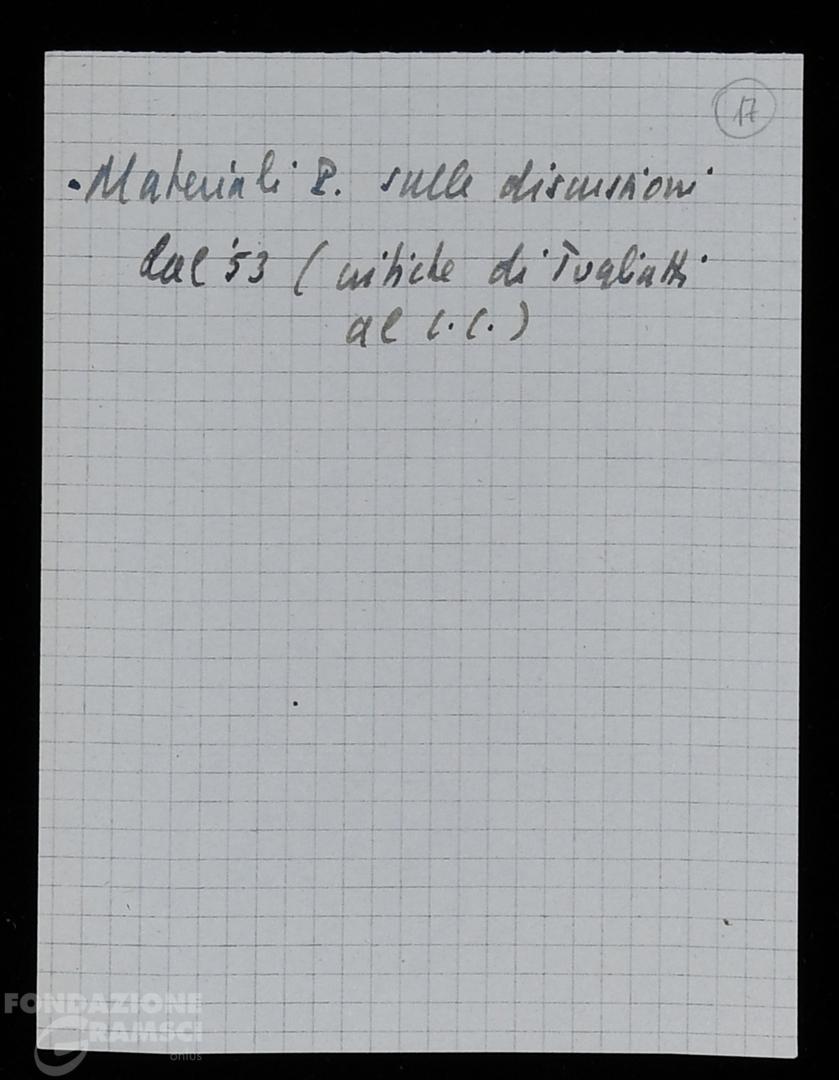 17
• Materiali P. sulle discussioni
del '53 (critiche di Togliatti
al C.C.)
FONDAZIONE
GRAMSCI
onlus